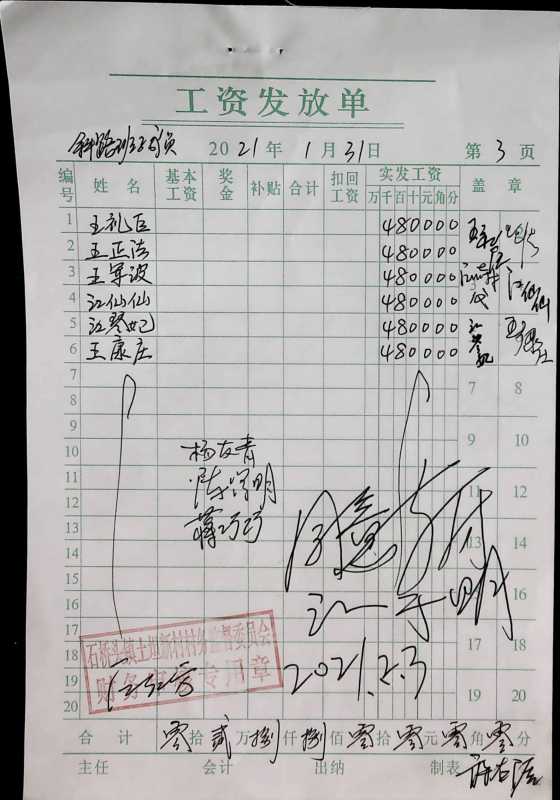 工资发放单
2021年1月31日 第3页
编号 姓名 基本工资 奖金 补贴 合计 扣回工资 实发工资 万千百十元角分 盖章
1 王礼臣 480000
2 王正法 480000
3 王军波 480000
4 江仙仙 480000 江仙仙
5 江琴妃 480000
6 王康庄 480000
7 7 8
8
9 9 10
10 杨友青
11 11 12
12 明
13 蒋巧巧 13 14
14 同意
15 15 16
16 江 明
17 17 18
18 石桥头镇 村村务监督委员会
19 财务 专用章 2021.2.3 19 20
20
合计 零拾贰万捌仟捌佰零拾零元零角零分
主任 会计 出纳 制表